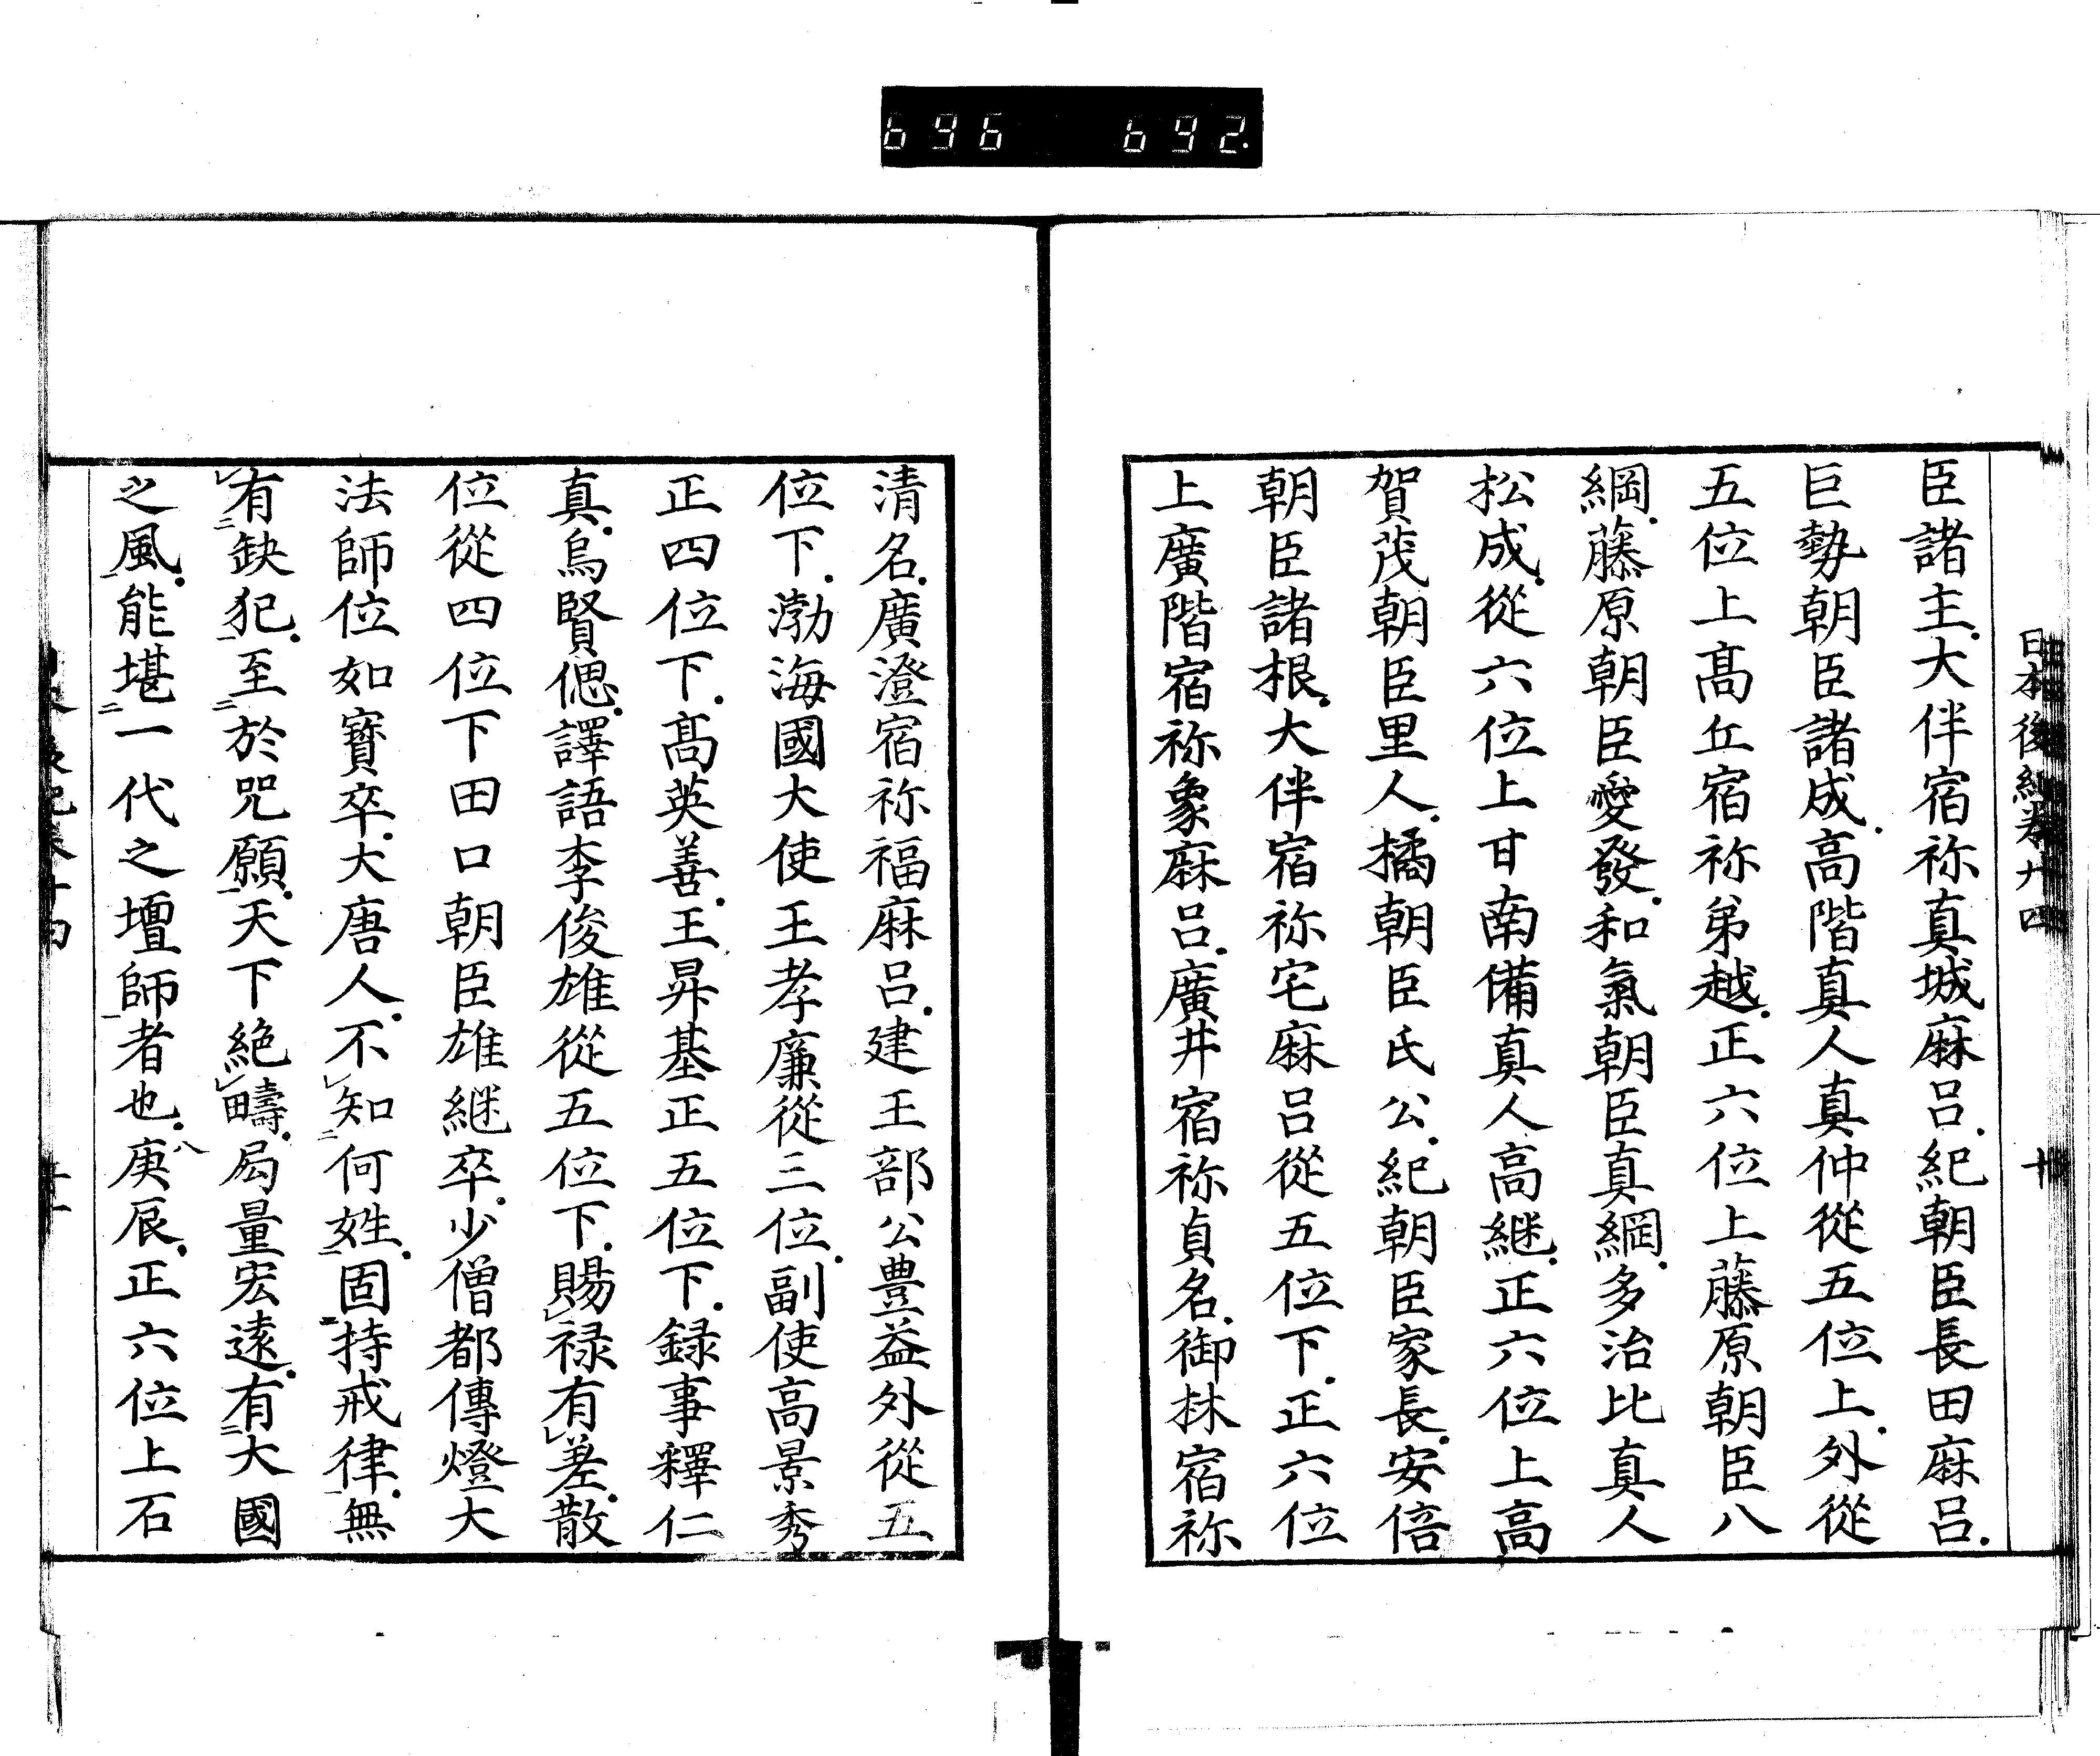 696 692.
日本後紀卷廿四 十
臣諸主.大伴宿祢真城麻呂.紀朝臣長田麻呂.
巨勢朝臣諸成.高階真人真仲從五位上.外從
五位上髙丘宿祢弟越.正六位上藤原朝臣八
綱.藤原朝臣愛發.和氣朝臣真綱.多治比真人
松成.從六位上甘南備真人高継.正六位上高
賀茂朝臣里人.橘朝臣氏公.紀朝臣家長.安倍
朝臣諸根.大伴宿祢宅麻呂從五位下.正六位
上廣階宿祢象麻呂.廣井宿祢貞名.御林宿祢
清名.廣澄宿祢福麻呂.建王部公豊益外從五
位下.渤海國大使王孝廉從三位.副使高景秀
正四位下.髙英善.王昇基正五位下.録事釋仁
真.烏賢偲.譯語李俊雄從五位下.賜レ禄有レ差.散
位從四位下田口朝臣雄継卒.少僧都傳燈大
法師位如寳卒.大唐人.不レ知二何姓一.固二持戒律一.無
レ有二缺犯一.至二於咒願一.天下絶レ疇.局量宏遠.有二大國
之風一.能堪二一代之壇師一者也.庚辰.八正六位上石